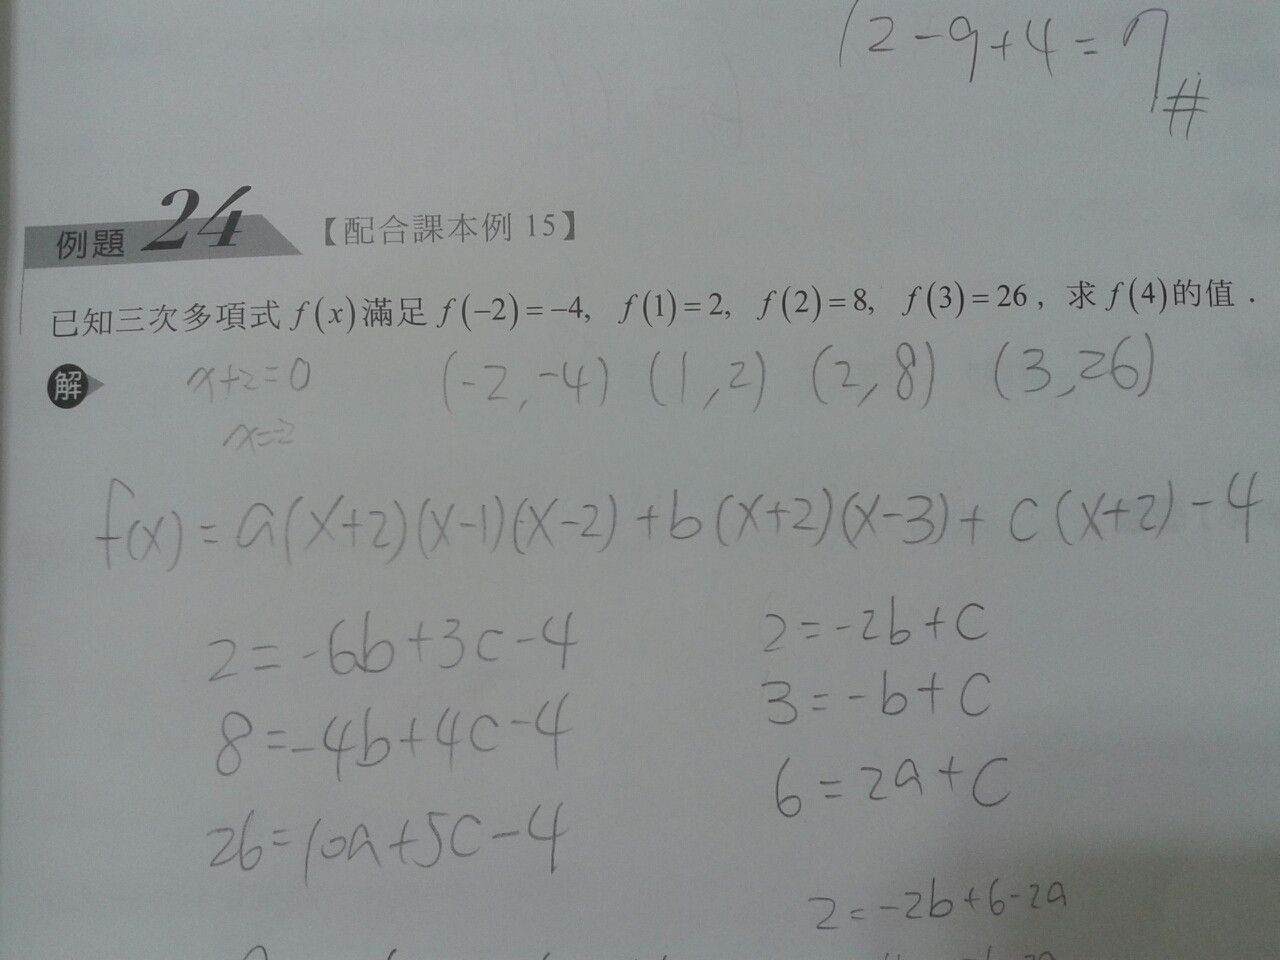 12-9+4=7#
例題 24 【配合課本例 15】
已知三次多項式 f(x) 滿足 f(-2)=-4, f(1)=2, f(2)=8, f(3)=26, 求 f(4) 的值.
解 x+2=0 (-2,-4) (1,2) (2,8) (3,26)
x=-2
f(x)=a(x+2)(x-1)(x-2)+b(x+2)(x-3)+c(x+2)-4
2=-6b+3c-4 2=-2b+c
8=-4b+4c-4 3=-b+c
26=10a+5c-4 6=2a+c
2=-2b+6-2a